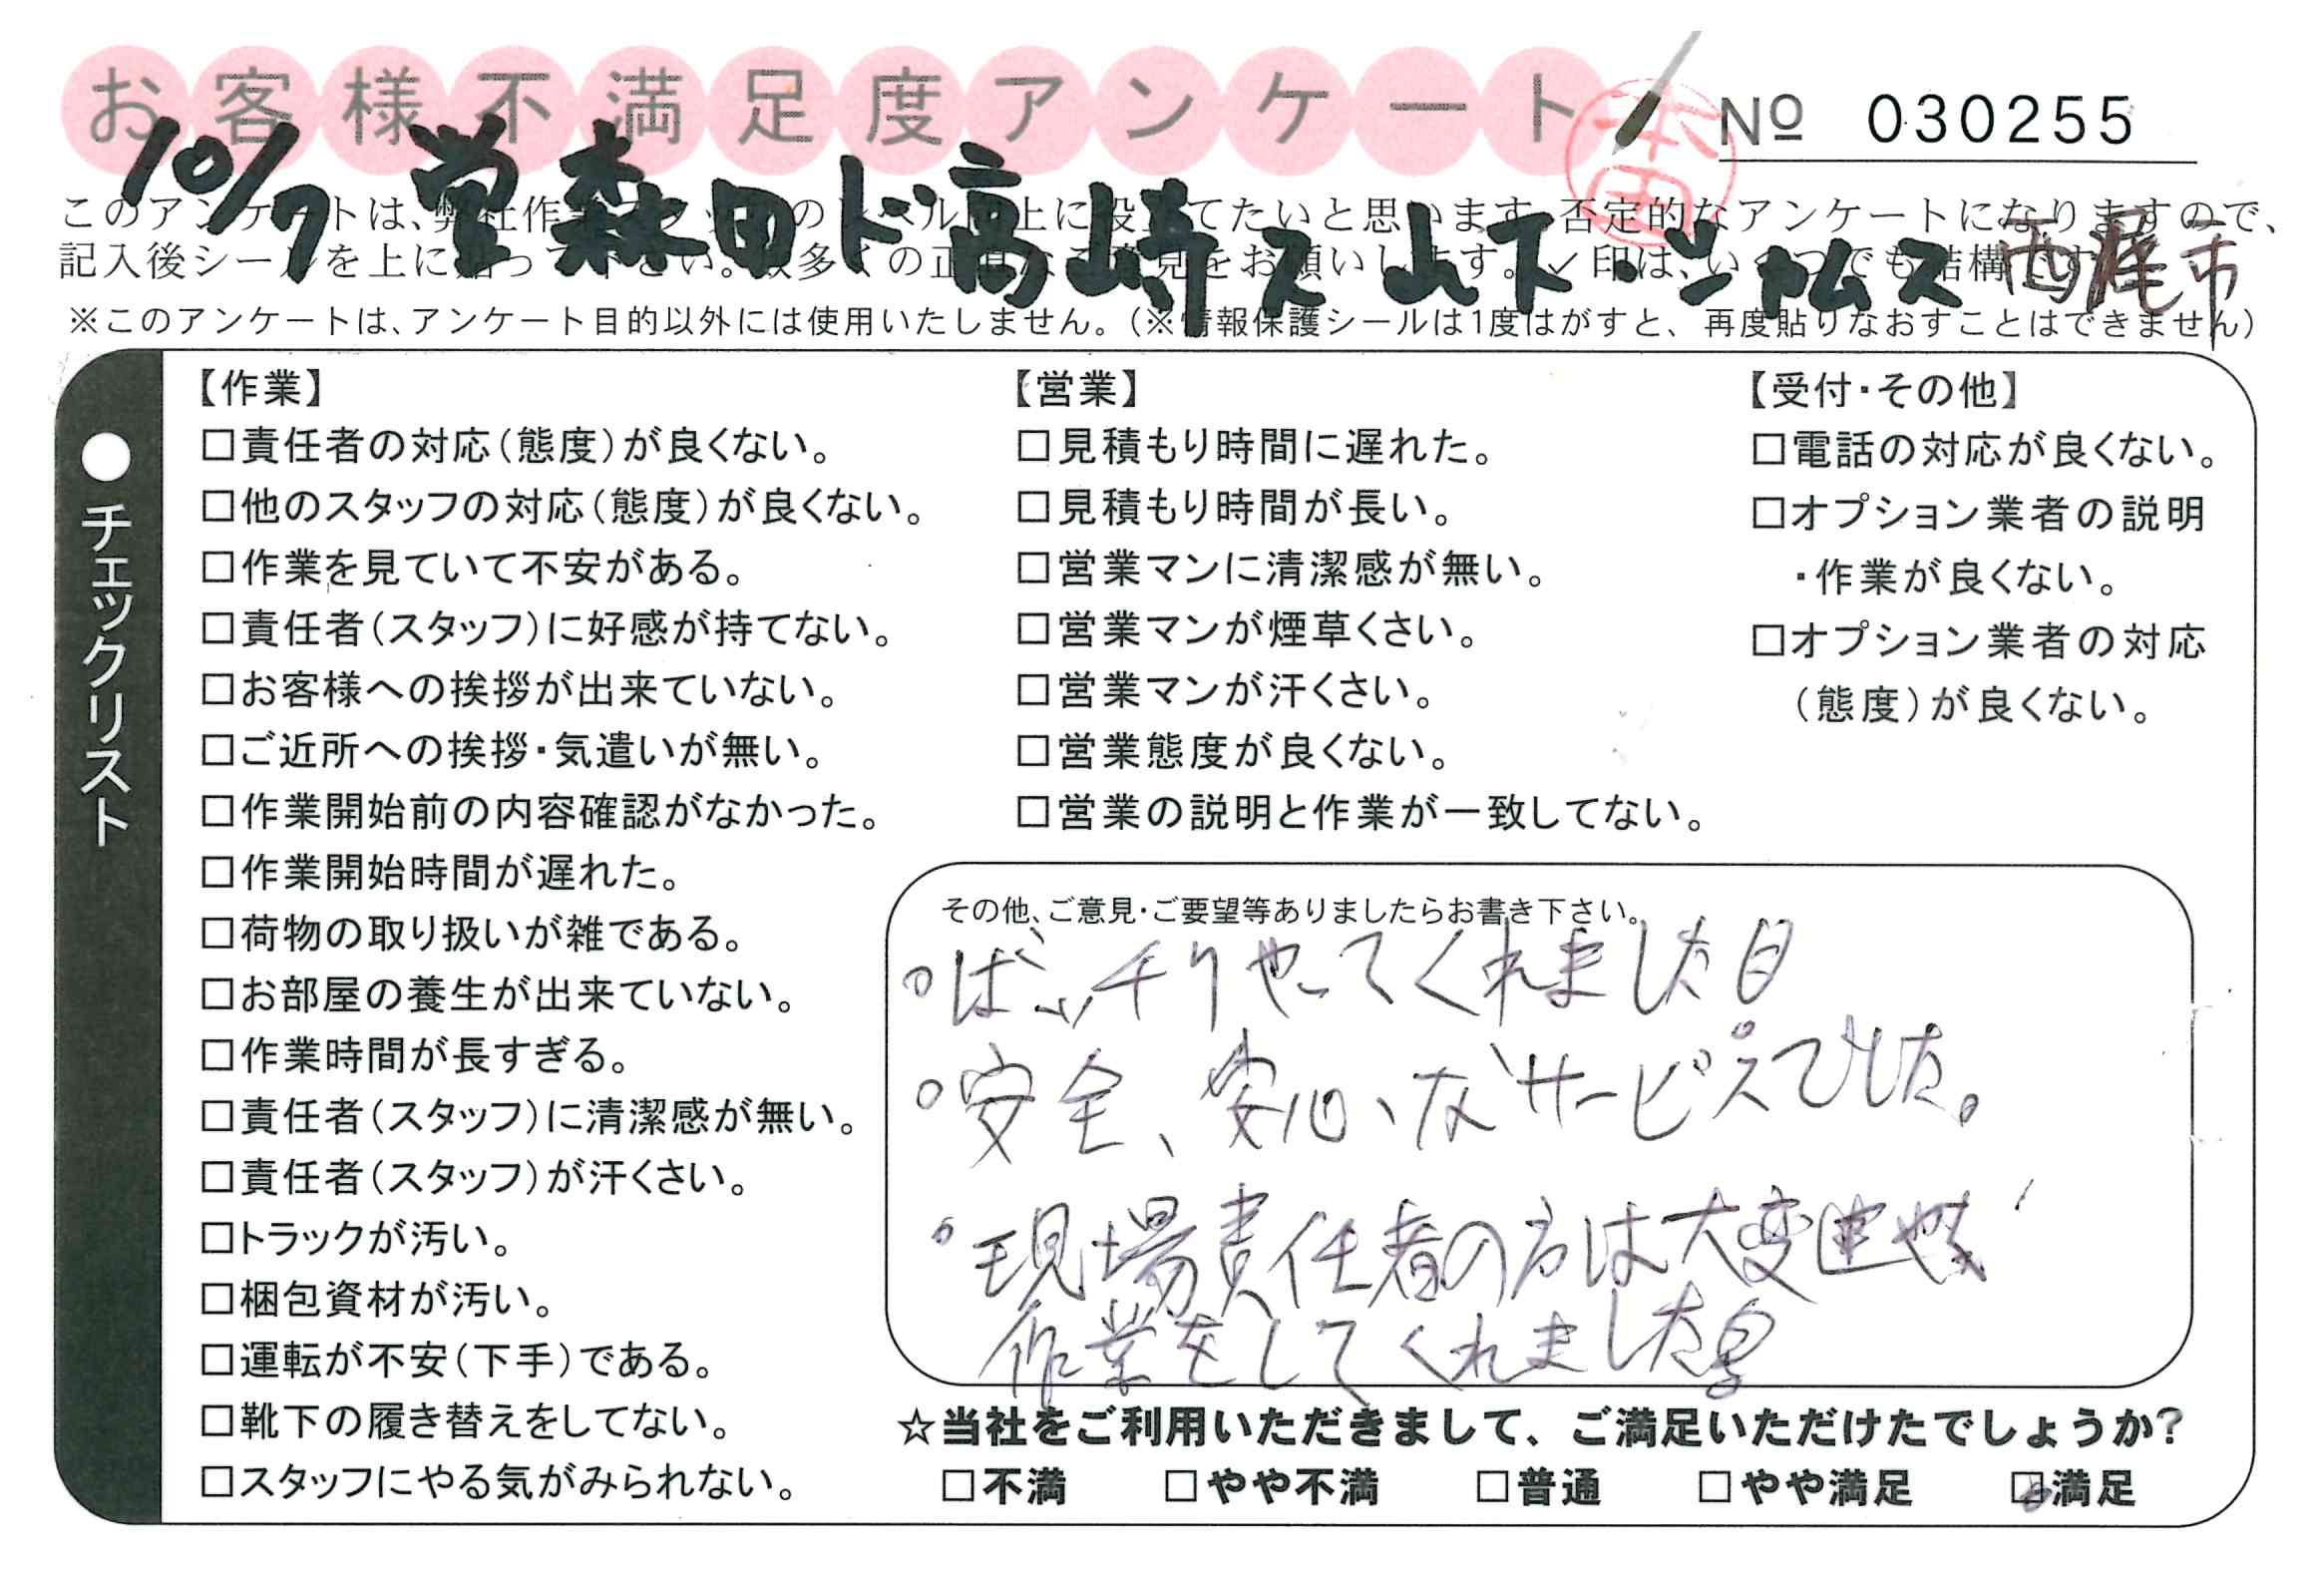 お客様不満足度アンケート
No 030255
10/7 営森田ド高崎ス山下・ジャムス 西尾市
このアンケートは、弊社作業スタッフのレベル向上に役立てたいと思います。否定的なアンケートになりますので、
記入後シールを上に貼って下さい。数多くの正直なご意見をお願いします。✓印は、いくつでも結構です。
※このアンケートは、アンケート目的以外には使用いたしません。(※情報保護シールは1度はがすと、再度貼りなおすことはできません)
●チェックリスト
【作業】
□責任者の対応(態度)が良くない。
□他のスタッフの対応(態度)が良くない。
□作業を見ていて不安がある。
□責任者(スタッフ)に好感が持てない。
□お客様への挨拶が出来ていない。
□ご近所への挨拶・気遣いが無い。
□作業開始前の内容確認がなかった。
□作業開始時間が遅れた。
□荷物の取り扱いが雑である。
□お部屋の養生が出来ていない。
□作業時間が長すぎる。
□責任者(スタッフ)に清潔感が無い。
□責任者(スタッフ)が汗くさい。
□トラックが汚い。
□梱包資材が汚い。
□運転が不安(下手)である。
□靴下の履き替えをしてない。
□スタッフにやる気がみられない。
【営業】
□見積もり時間に遅れた。
□見積もり時間が長い。
□営業マンに清潔感が無い。
□営業マンが煙草くさい。
□営業マンが汗くさい。
□営業態度が良くない。
□営業の説明と作業が一致してない。
【受付・その他】
□電話の対応が良くない。
□オプション業者の説明
・作業が良くない。
□オプション業者の対応
(態度)が良くない。
その他、ご意見・ご要望等ありましたらお書き下さい。
○ばっチリやってくれました
○安全、安心なサービスでした。
○現場責任者の方は大変
作業をしてくれました
☆当社をご利用いただきまして、ご満足いただけたでしょうか?
□不満 □やや不満 □普通 □やや満足 ☑満足